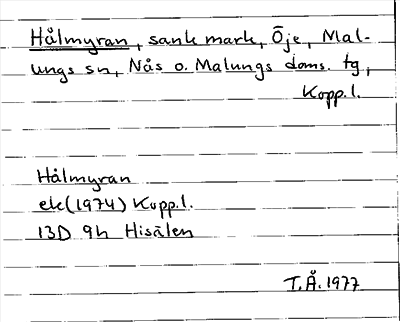 Hålmyran, sank mark, Öje, Mal-
ungs sn, Nås o. Malungs doms. tg,
Kopp.l.
Hålmyran
ek(1974) Kopp.l.
13D 9h Hisälen
T.Å. 1977